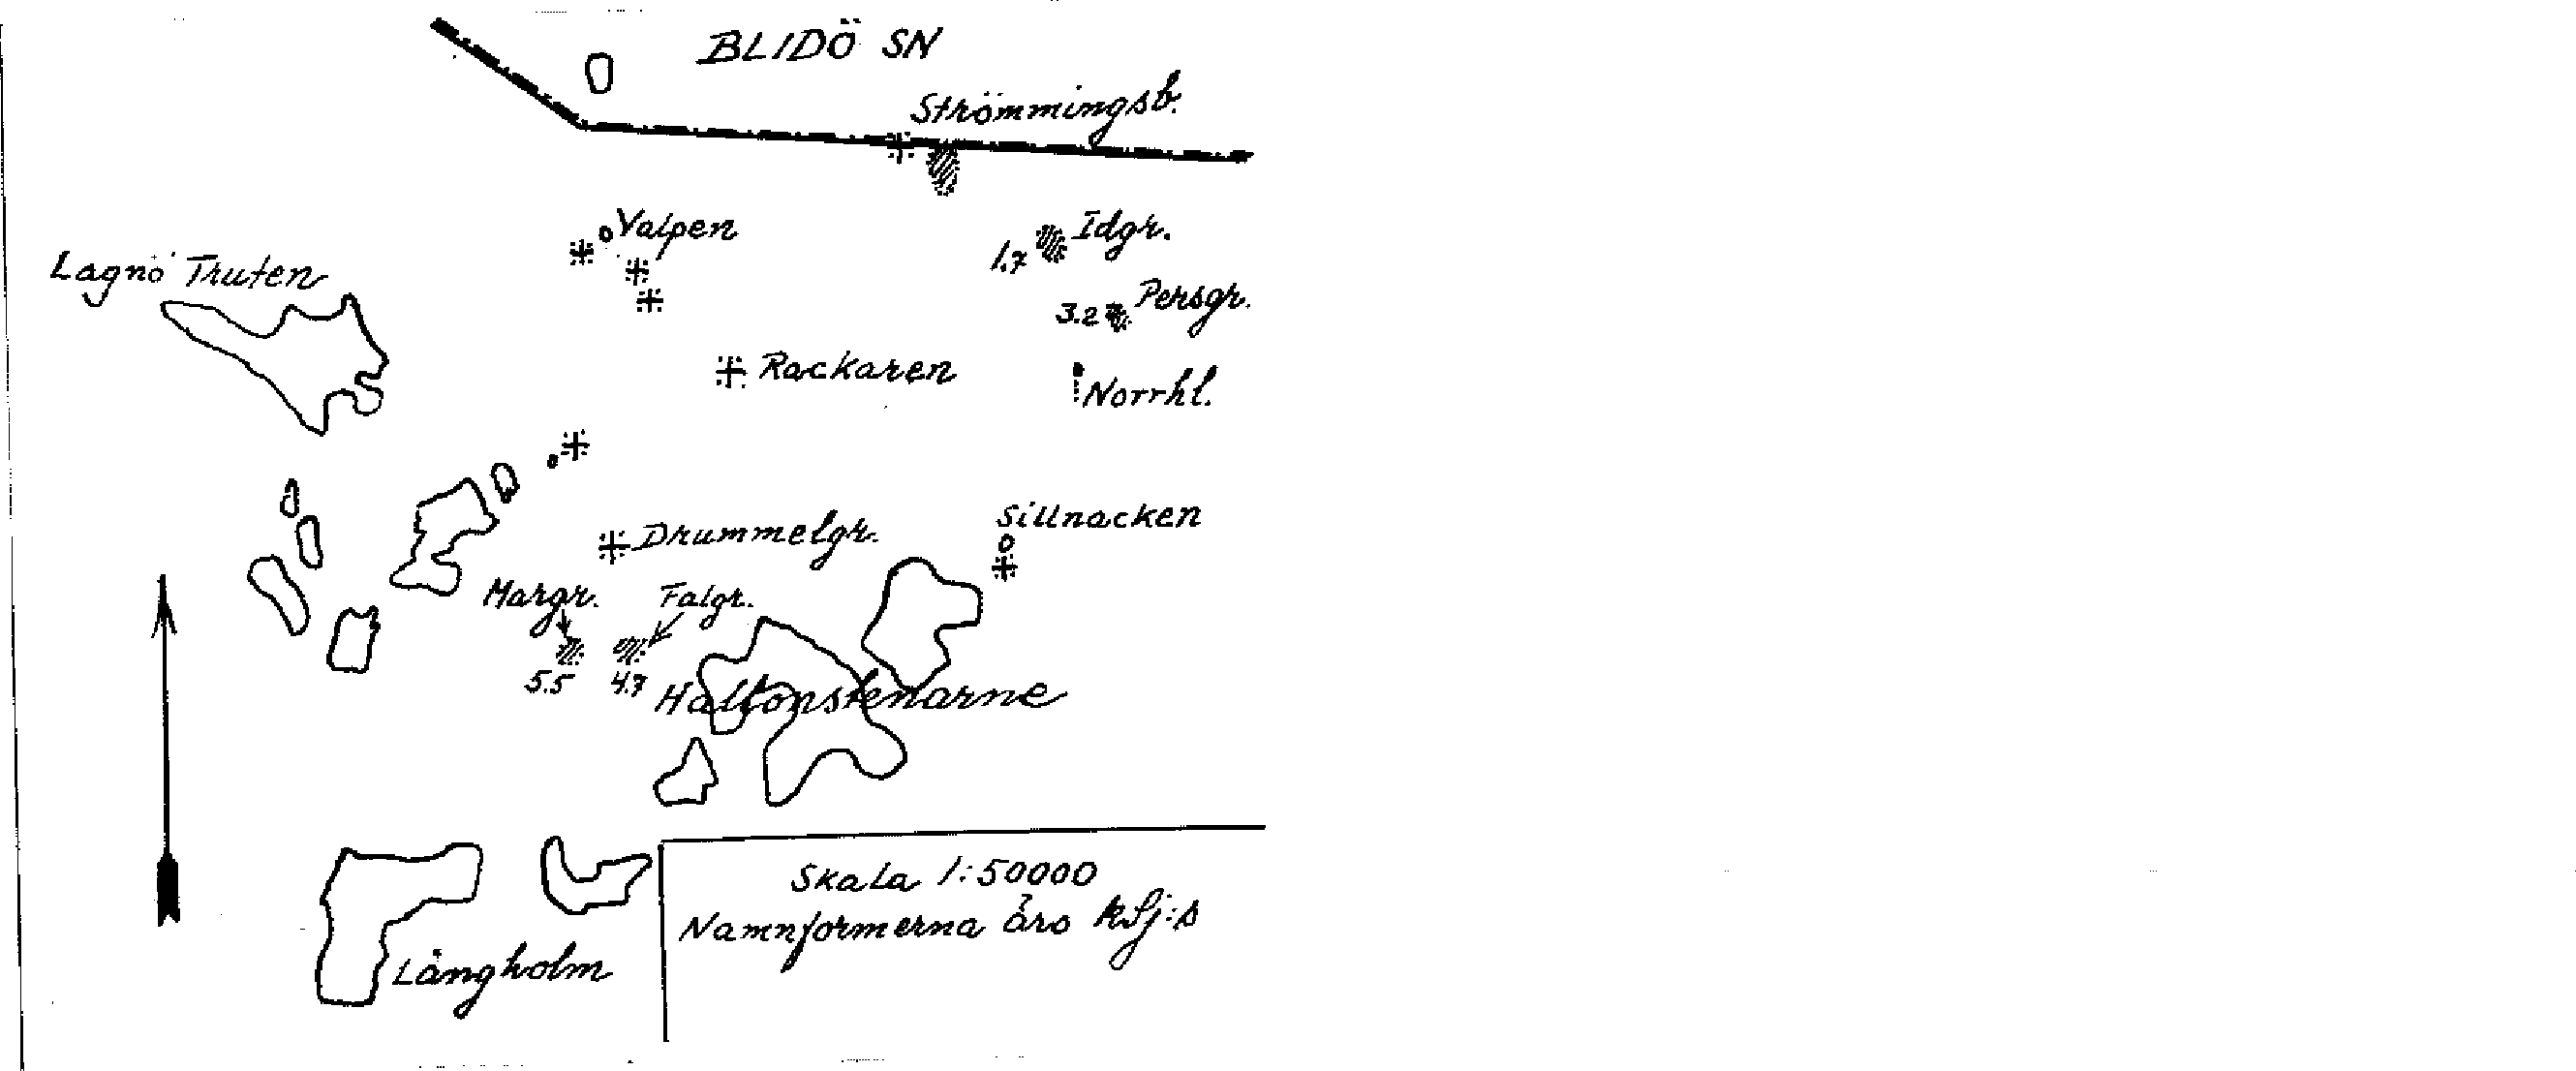 BLIDÖ SN
Strömmingsb.
Valpen
Idgr.
1.7
Lagnö Truten
Persgr.
3.2
Rackaren
Norrhl.
Sillnacken
Drummelgr.
Margr.
Falgr.
5.5
4.7
Hallonstenarne
Skala 1:50000
Namnformerna äro kSj:s
Långholm